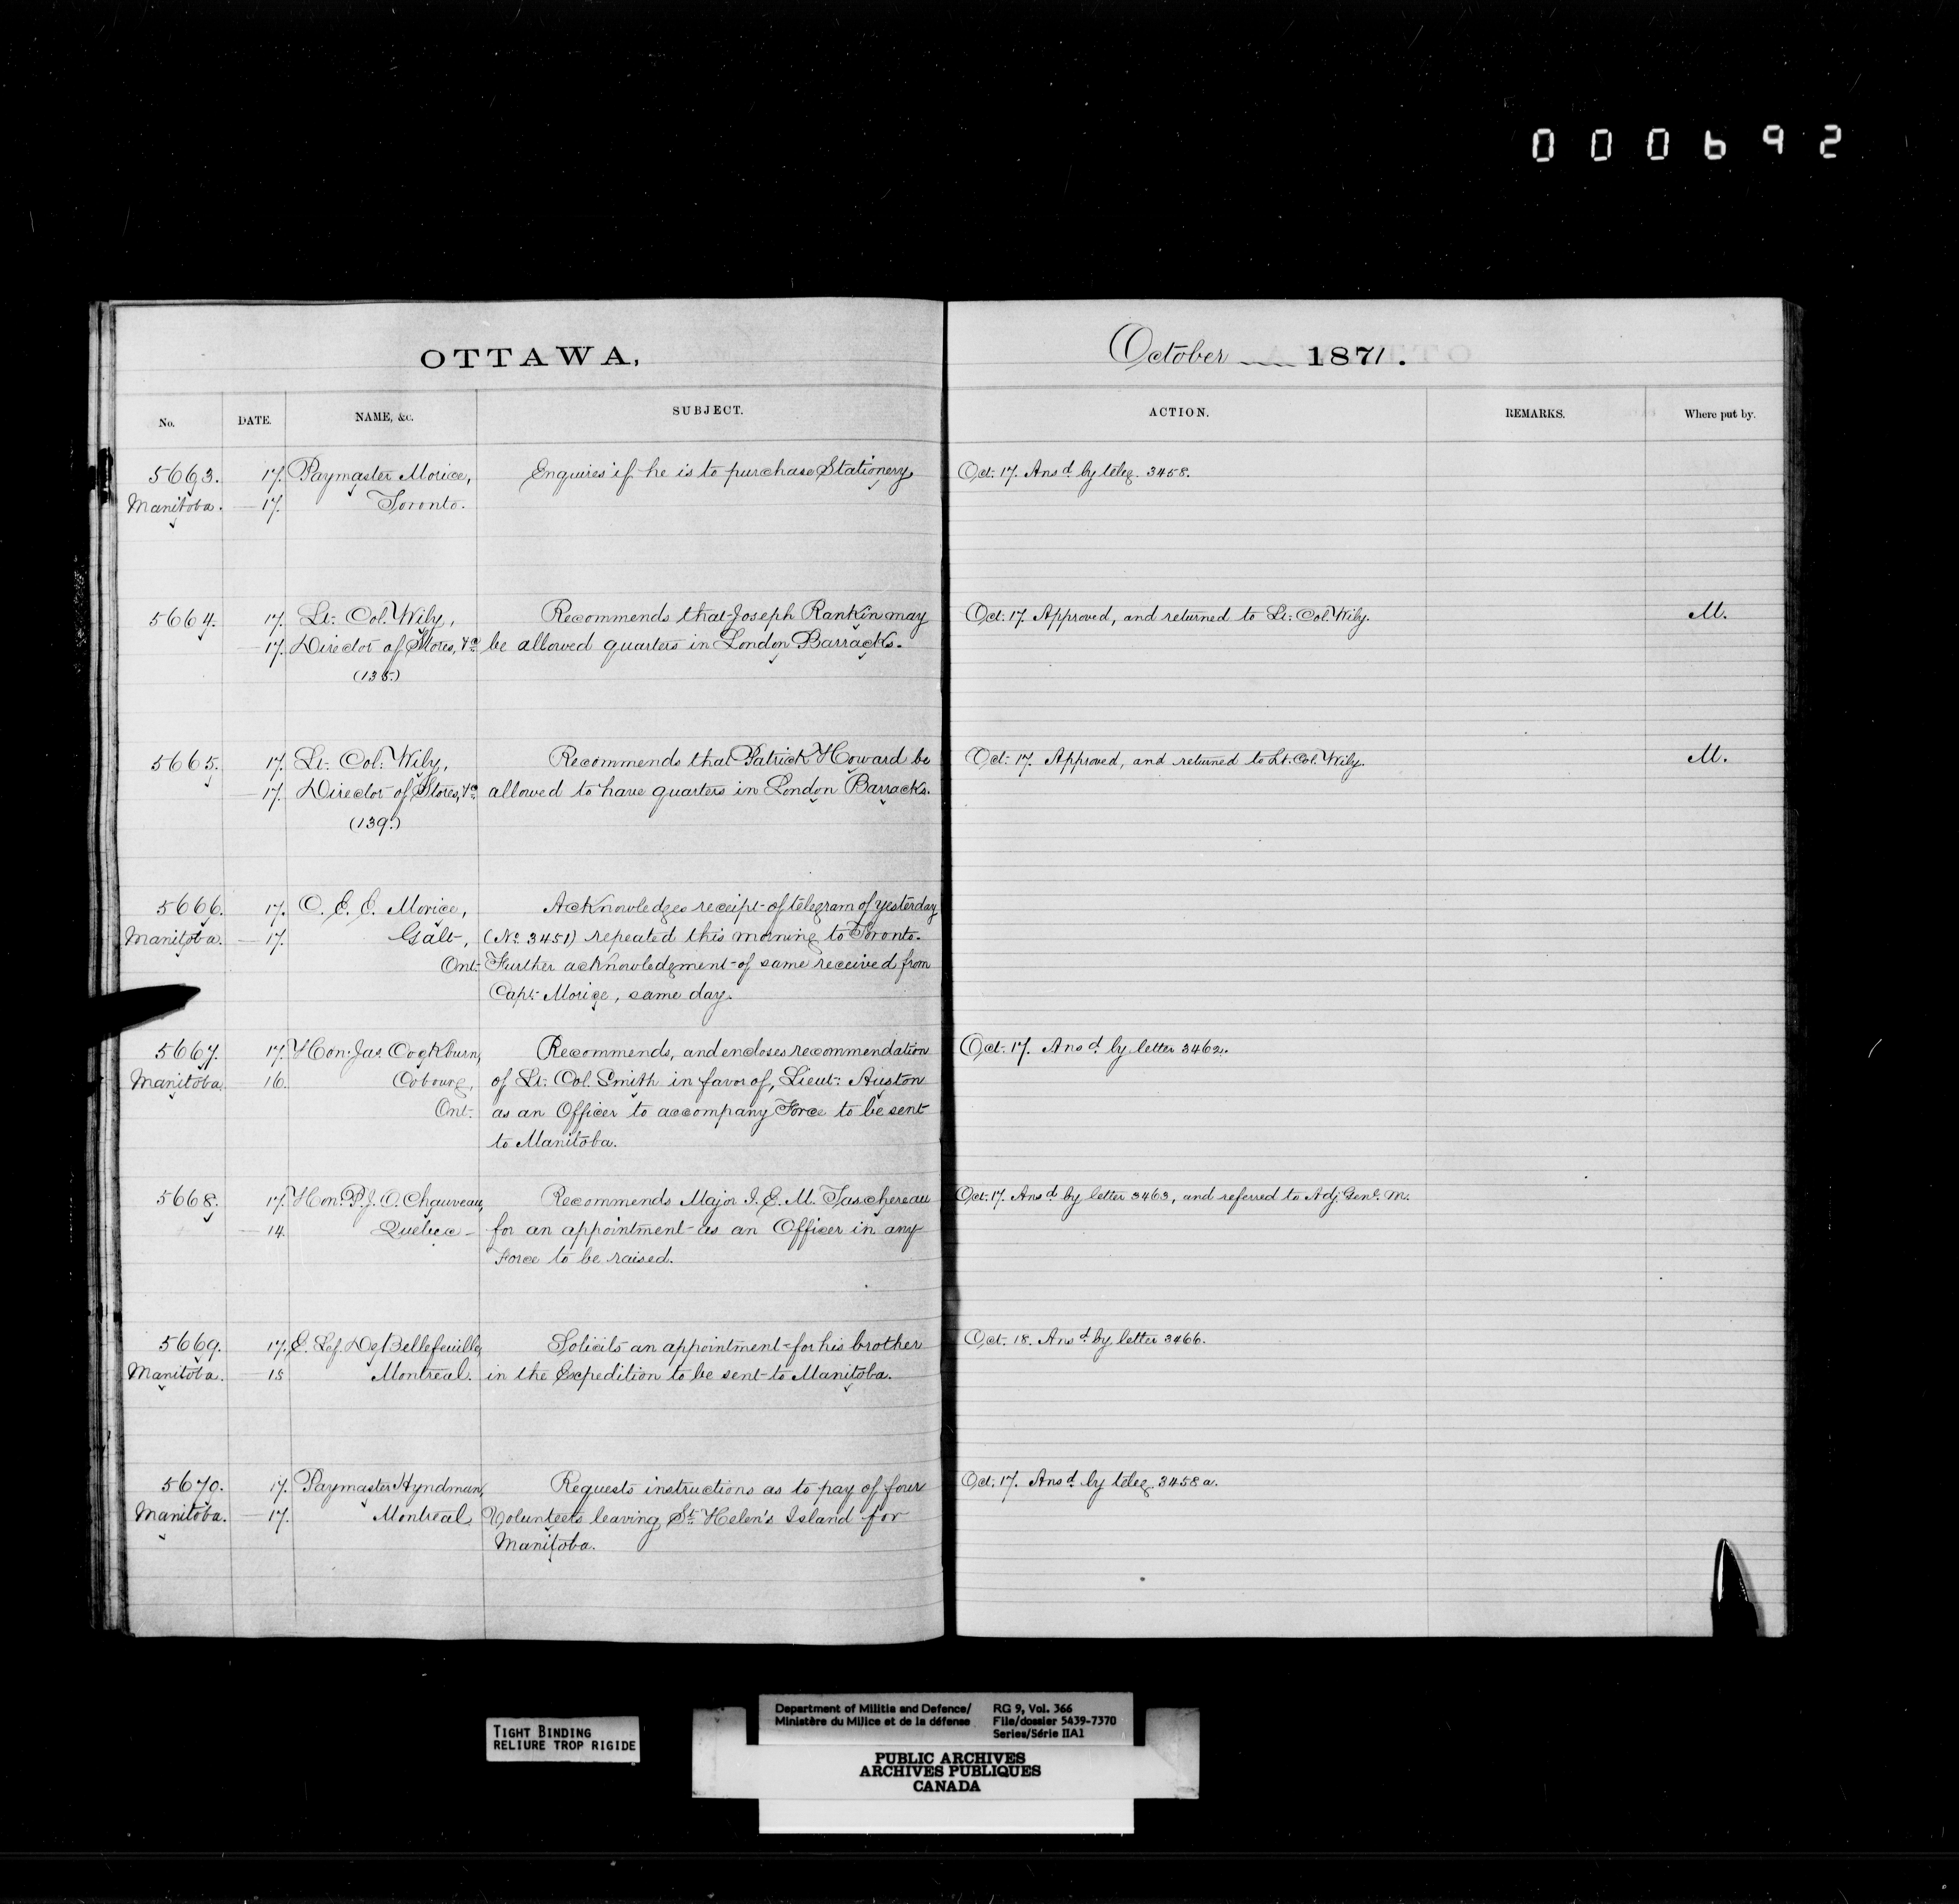 000692
OTTAWA, October 1871.
No. DATE. NAME, &c. SUBJECT. ACTION. REMARKS. Where put by.
5663. 17. Paymaster Morice, Enquires if he is to purchase Stationery Oct. 17. Ansd. by teleg. 3458.
Manitoba. 17. Toronto.
5664. 17. Lt. Col. Wily, Recommends that Joseph Rankin may Oct. 17. Approved, and returned to Lt. Col. Wily. M.
17. Director of Stores, &c. be allowed quarters in London Barracks.
(135.)
5665. 17. Lt. Col. Wily, Recommends that Patrick Howard be Oct. 17. Approved, and returned to Lt. Col. Wily. M.
17. Director of Stores, &c. allowed to have quarters in London Barracks.
(139.)
5666. 17. C. E. E. Morice, Acknowledges receipt of telegram of yesterday
Manitoba. 17. Galt, (No. 3451) repeated this morning to Toronto.
Ont. Further acknowledgment of same received from
Capt. Morice, same day.
5667. 17. Hon. Jas. Cockburn, Recommends, and encloses recommendation Oct. 17. Ansd. by letter 3462.
Manitoba. 16. Cobourg, of Lt. Col. Smith in favor of, Lieut. Auston
Ont. as an Officer to accompany Force to be sent
to Manitoba.
5668. 17. Hon. P. J. O. Chauveau, Recommends Major I. E. M. Taschereau Oct. 17. Ansd. by letter 3463, and referred to Adj. Genl. M.
14. Quebec for an appointment as an Officer in any
Force to be raised.
5669. 17. E. Lef. De Bellefeuille, Solicits an appointment for his brother Oct. 18. Ansd. by letter 3466.
Manitoba. 15 Montreal. in the Expedition to be sent to Manitoba.
5670. 17. Paymaster Hyndman, Requests instructions as to pay of four Oct. 17. Ansd. by teleg. 3458a.
Manitoba. 17. Montreal. Volunteers leaving St. Helen's Island for
Manitoba.
TIGHT BINDING
RELIURE TROP RIGIDE
Department of Militia and Defence/ RG 9, Vol. 366
Ministère du Milice et de la défense File/dossier 5439-7370
Series/Série IIA1
PUBLIC ARCHIVES
ARCHIVES PUBLIQUES
CANADA